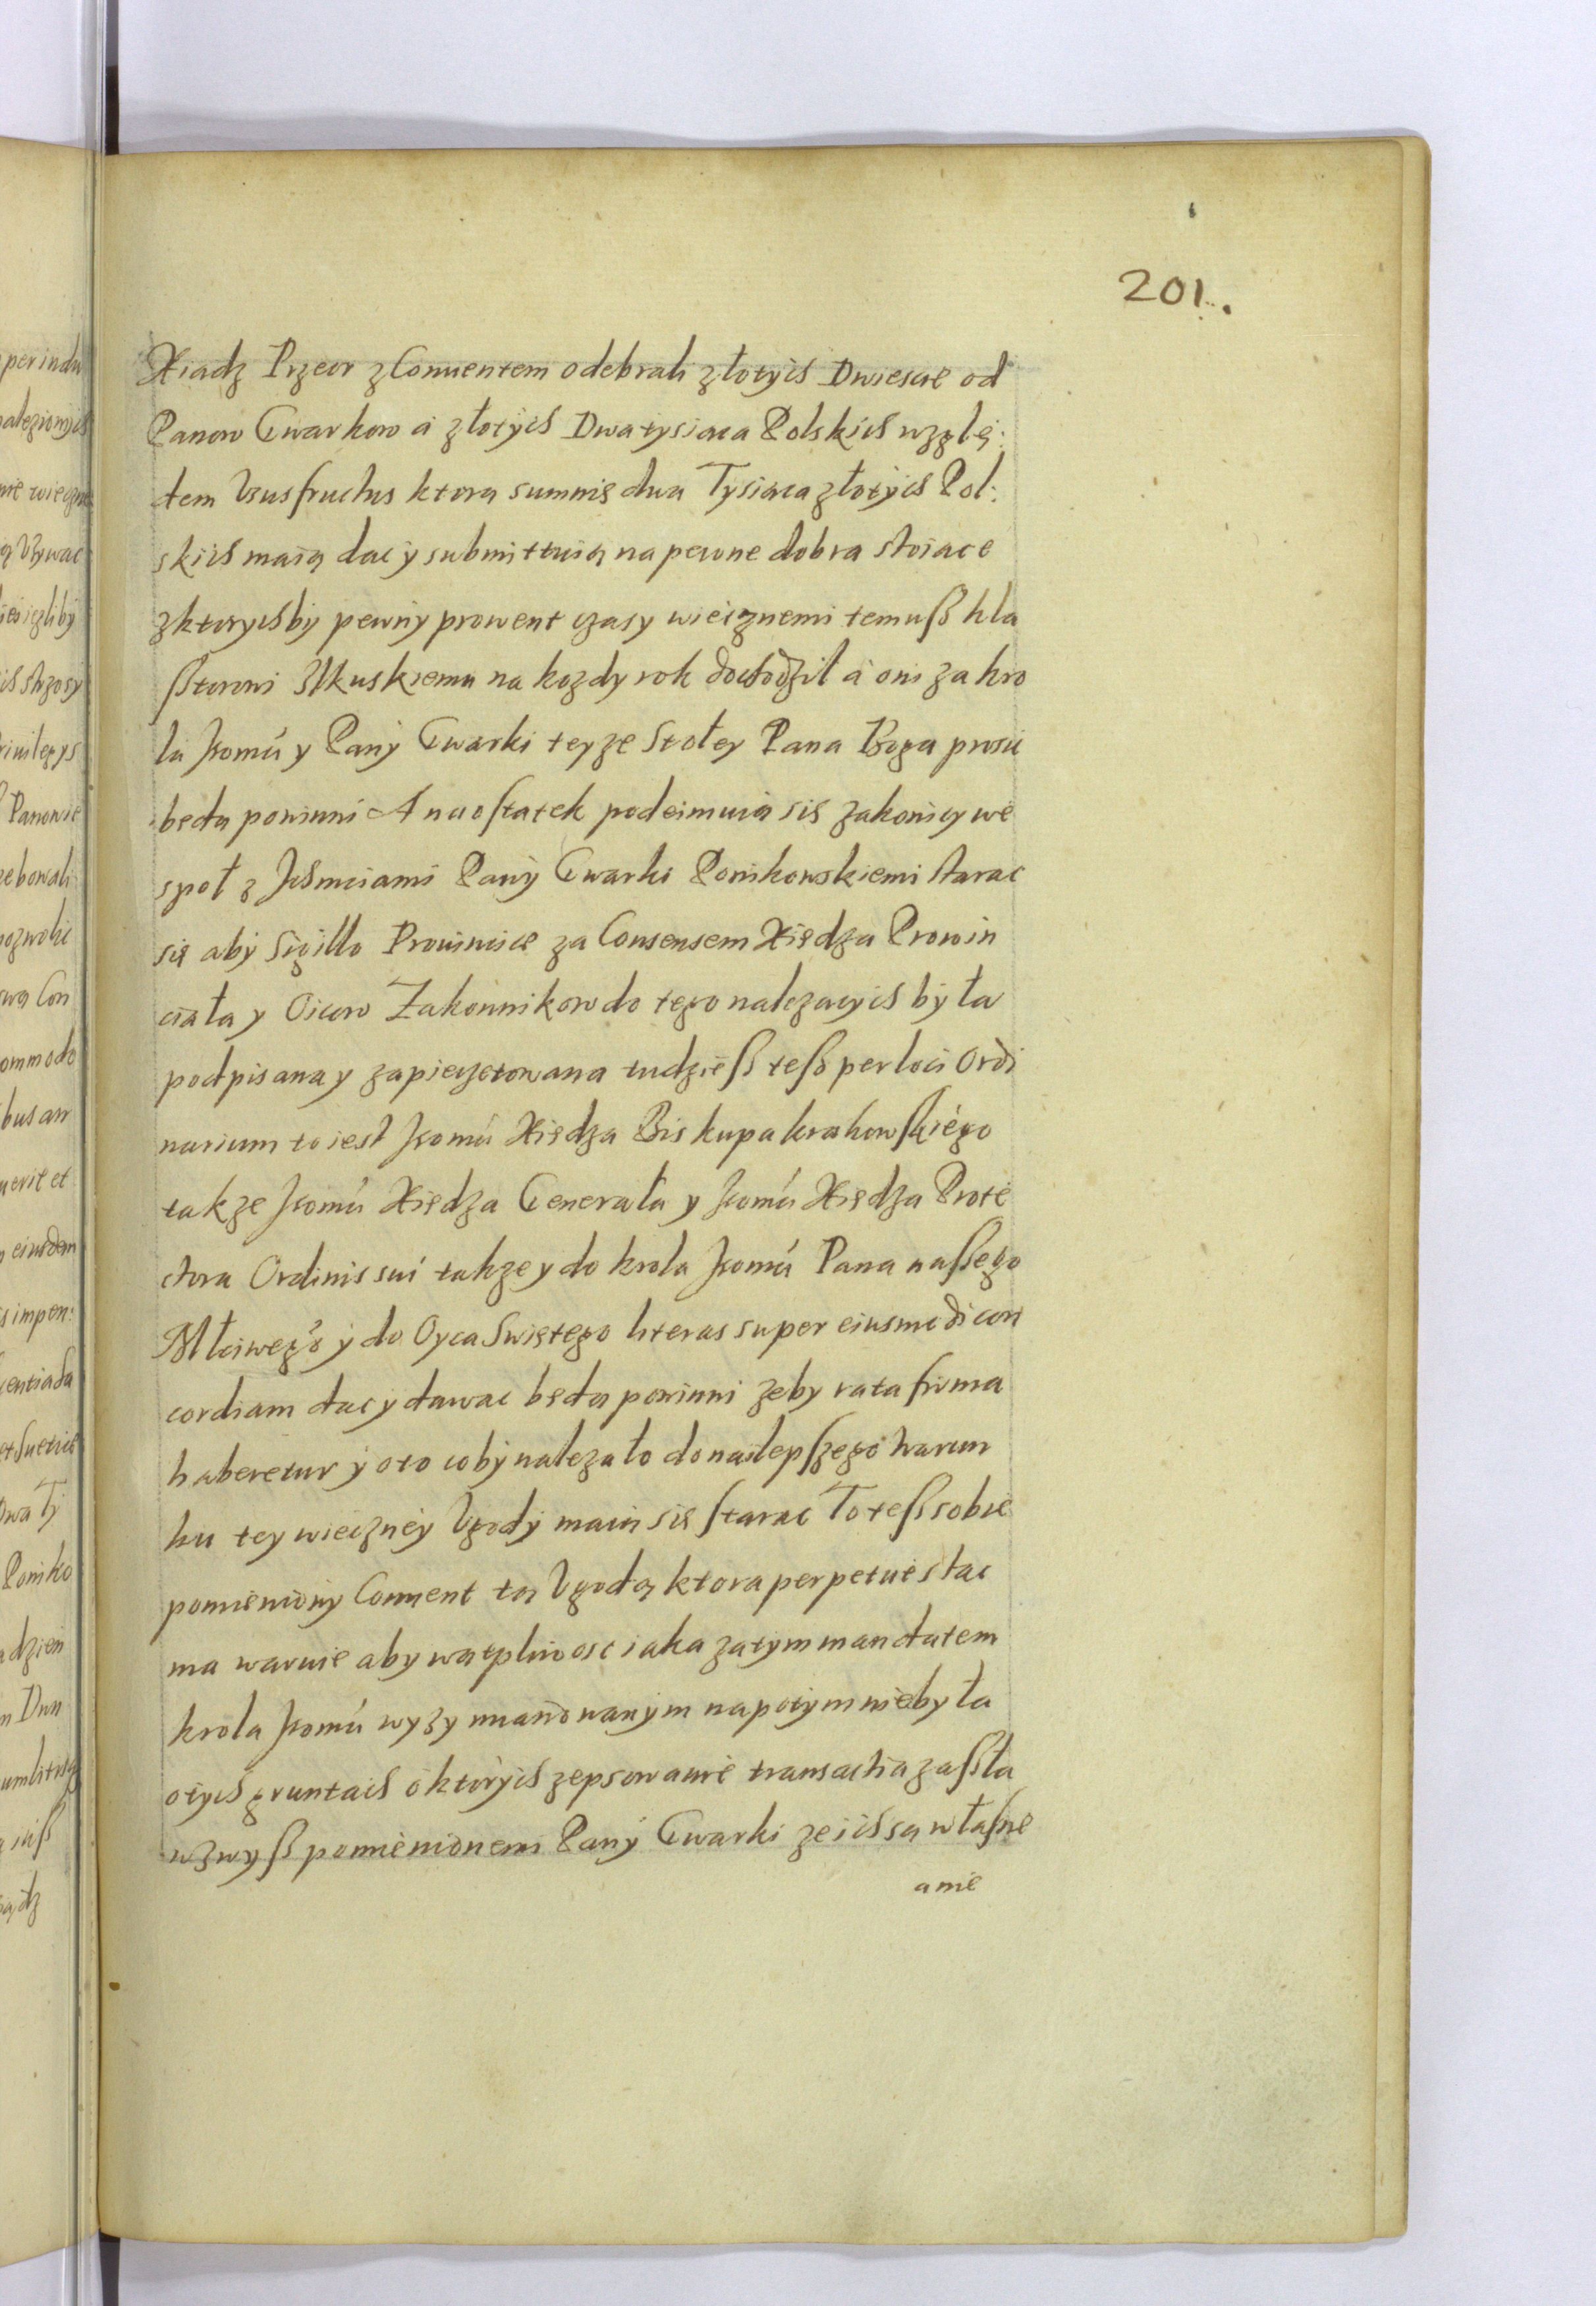 201.
Xiadz Przeor z Conuentem odebrali złotÿch Dwiescie od
Panow Gwarkow a złotÿch Dwa tysiaca Polskich wzglę:
dem Vsusfructus ktorą summę dwa Tysiąca złotÿch Pol:
skich maią dac ÿ submittuią na pewne dobra stoiace
z ktorychby pewnÿ prowent czasy wiecznemi temuß kla
ßtorowi Ilkuskiemu na kozdy rok dochodził a oni za kro
la Jkomú y Panÿ Gwarki teyze Stołey Pana Boga prosic
będą powinni A na ostatek podeimuią się zakonicy we
społ z Jchmciami Panÿ Gwarki Ponikowskiemi starac
się abÿ Sigillo Prouinciæ za Consensem Xiędza Prowin
ciała y Oicow Zakonnikow do tego nalezacych bÿła
podpisana y zapieczetowana tudzieß teß per loci Ordi
narium to iest Jkomú Xiędza Biskupa krakowskiégo
takze Jkomú Xiędza Generała y Jkomú Xiędza Prote
ctora Ordinis sui takze y do krola Jkomú Pana naßego
Młciwego ÿ do Oyca Swiętego literas super eiusmodi con
cordiam dac y dawac będą powinni zeby rata firma
haberetur ÿ oto cobÿ nalezało do nailepszego warun
ku tey wiecznéy Vgodÿ maią się starac To teß sobie
pomieniony Conuent tą Vgodą ktora perpetue stac
ma waruie aby wątpliwosc iaka zatym mandatem
krola Jkomú wyzy mianowanÿm na potym niebyła
o tÿch gruntach o ktorÿch zepsowanie transactia zaßła
wzwyß pomienionemi Panÿ Gwarki ze ich są własne
a nie